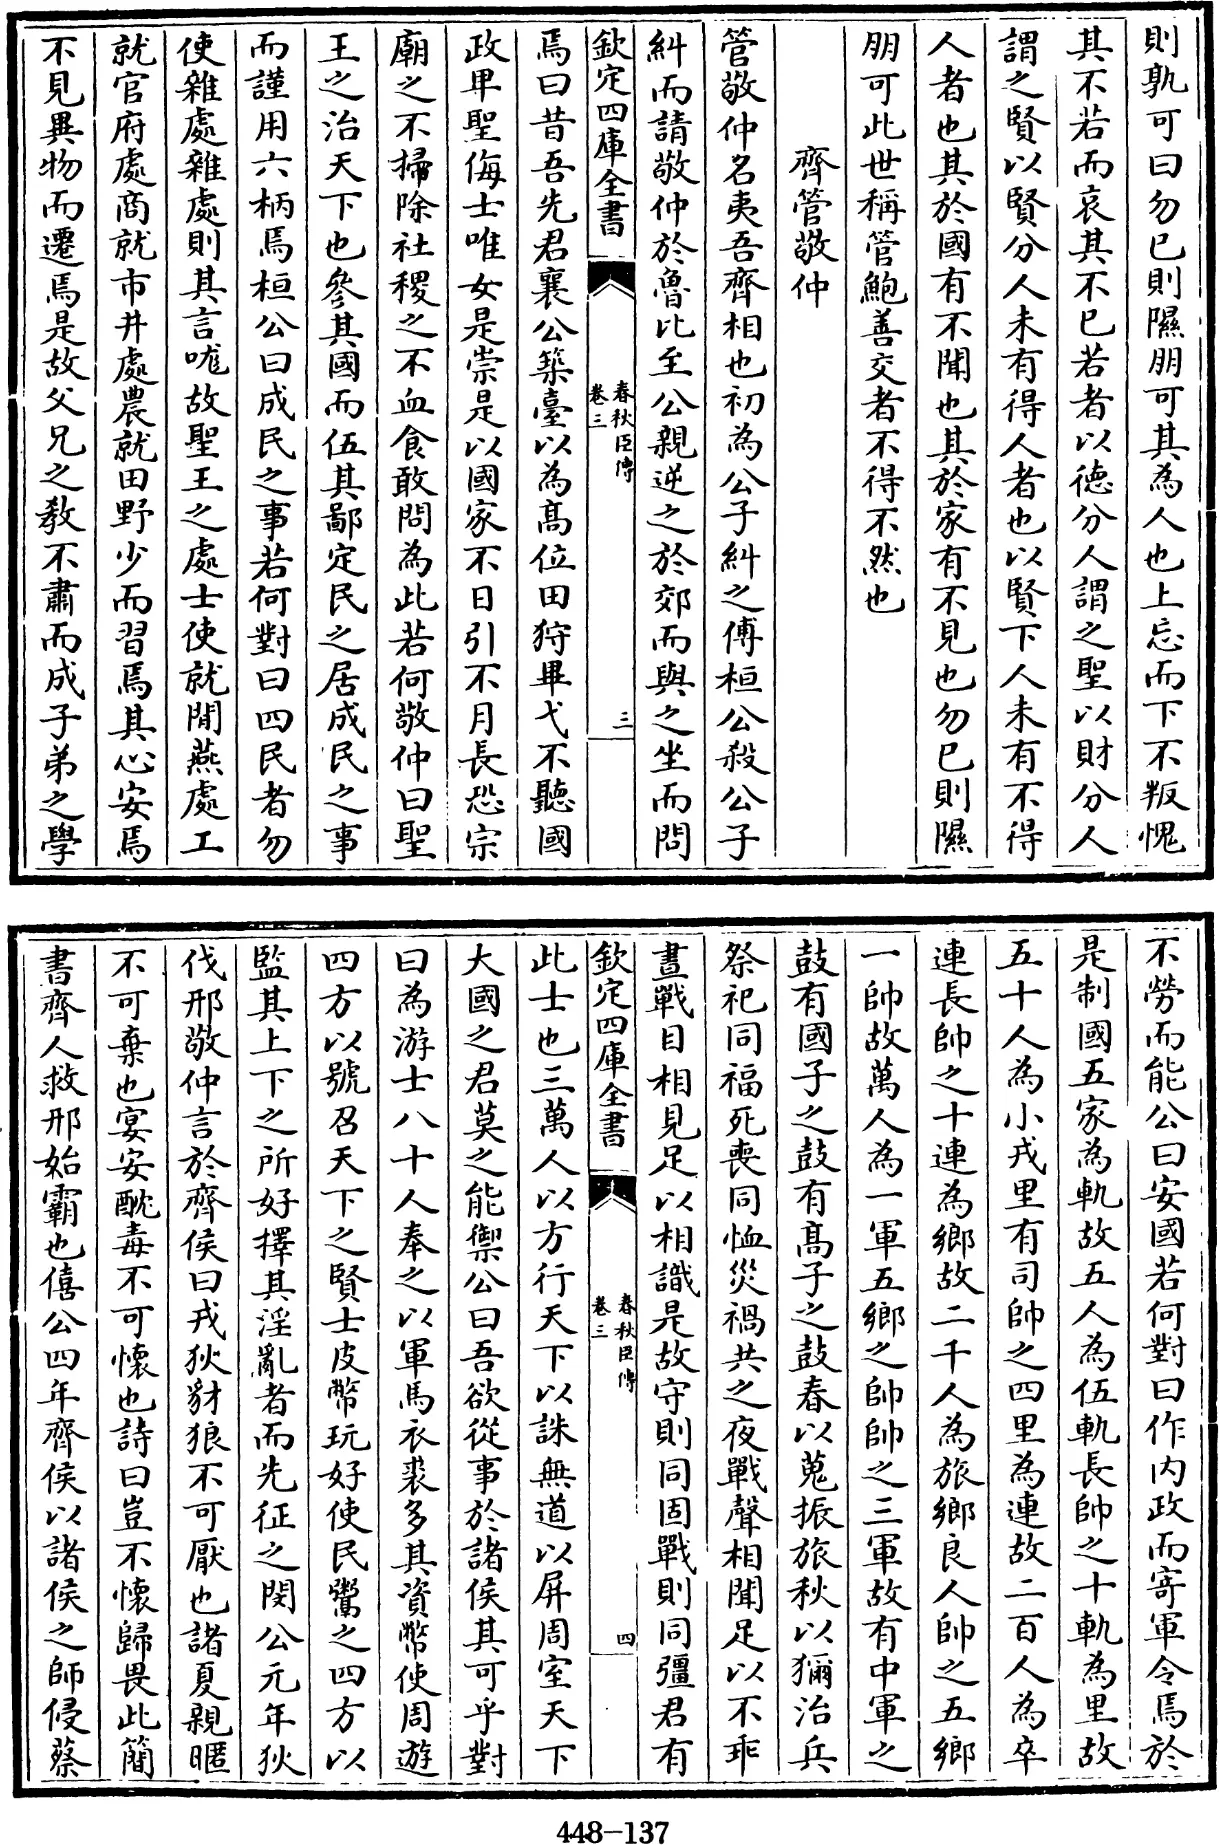 則孰可曰勿已則隰朋可其為人也上忘而下不叛愧
其不若而哀其不已若者以徳分人謂之聖以財分人
謂之賢以賢分人未有得人者也以賢下人未有不得
人者也其於國有不聞也其於家有不見也勿已則隰
朋可此世稱管鮑善交者不得不然也
齊管敬仲
管敬仲名夷吾齊相也初為公子糾之傅桓公殺公子
糾而請敬仲於魯比至公親逆之於郊而與之坐而問
欽定四庫全書
春秋臣傳
卷三
三
焉曰昔吾先君襄公築臺以為髙位田狩畢弋不聽國
政卑聖侮士唯女是崇是以國家不日引不月長恐宗
廟之不掃除社稷之不血食敢問為此若何敬仲曰聖
王之治天下也參其國而伍其鄙定民之居成民之事
而謹用六柄焉桓公曰成民之事若何對曰四民者勿
使雜處雜處則其言哤故聖王之處士使就閒燕處工
就官府處商就市井處農就田野少而習焉其心安焉
不見異物而遷焉是故父兄之教不肅而成子弟之學
不勞而能公曰安國若何對曰作内政而寄軍令焉於
是制國五家為軌故五人為伍軌長帥之十軌為里故
五十人為小戎里有司帥之四里為連故二百人為卒
連長帥之十連為鄉故二千人為旅鄉良人帥之五鄉
一帥故萬人為一軍五鄉之帥帥之三軍故有中軍之
鼓有國子之鼓有髙子之鼓春以蒐振旅秋以獮治兵
祭祀同福死喪同恤災禍共之夜戰聲相聞足以不乖
晝戰目相見足以相識是故守則同固戰則同彊君有
欽定四庫全書
春秋臣傳
卷三
四
此士也三萬人以方行天下以誅無道以屏周室天下
大國之君莫之能禦公曰吾欲從事於諸侯其可乎對
曰為游士八十人奉之以軍馬衣裘多其資幣使周遊
四方以號召天下之賢士皮幣玩好使民鬻之四方以
監其上下之所好擇其淫亂者而先征之閔公元年狄
伐邢敬仲言於齊侯曰戎狄豺狼不可厭也諸夏親暱
不可棄也宴安酖毒不可懷也詩曰豈不懷歸畏此簡
書齊人救邢始霸也僖公四年齊侯以諸侯之師侵蔡
448-137